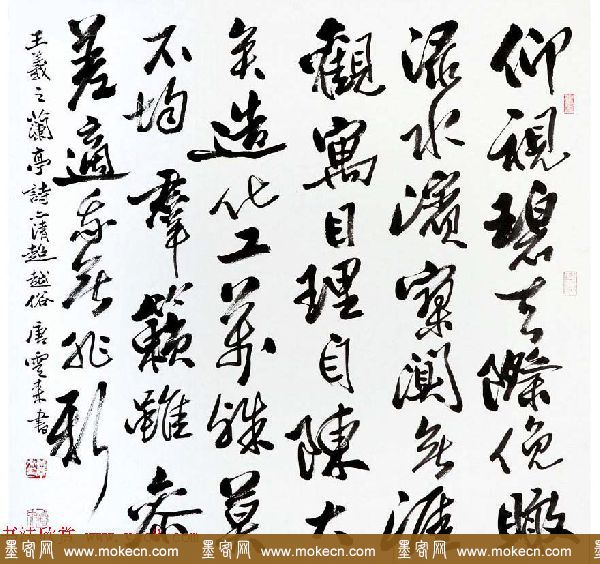 仰視碧天際俛瞰
淥水濱寥闃無涯
觀寓目理自陳大
矣造化工萬殊莫
不均羣籟雖參
差適我無非新
王羲之蘭亭詩清超越俗 唐雲来書
书法欣赏
墨客网 www.mokecn.com 墨客网 www.mokecn.com 墨客网 www.mokecn.com